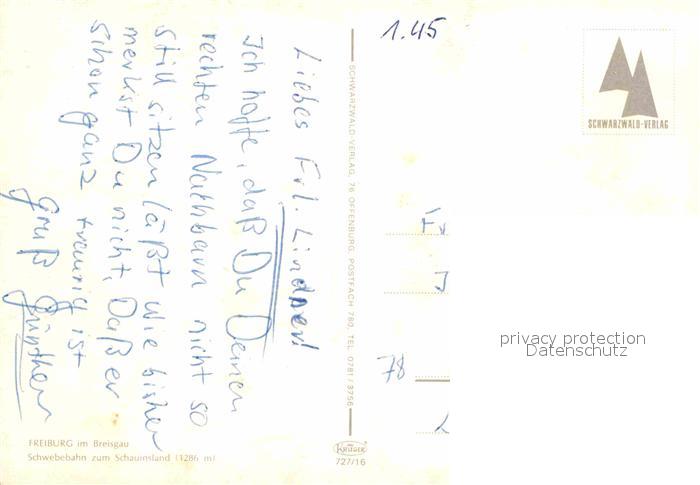 Liebes Frl. Lindner!
Ich hoffe, daß Du Deinen
rechten Nachbarn nicht so
still sitzen läßt wie bisher
merkst Du nicht, Daß er
schon ganz traurig ist
Gruß Günther
FREIBURG im Breisgau
Schwebebahn zum Schauinsland (1286 m)
SCHWARZWALD-VERLAG, 76 OFFENBURG, POSTFACH 780, TEL. 0781/3756
KRÜGER
727/16
1.45
SCHWARZWALD-VERLAG
Fr
J
78
L
privacy protection
Datenschutz